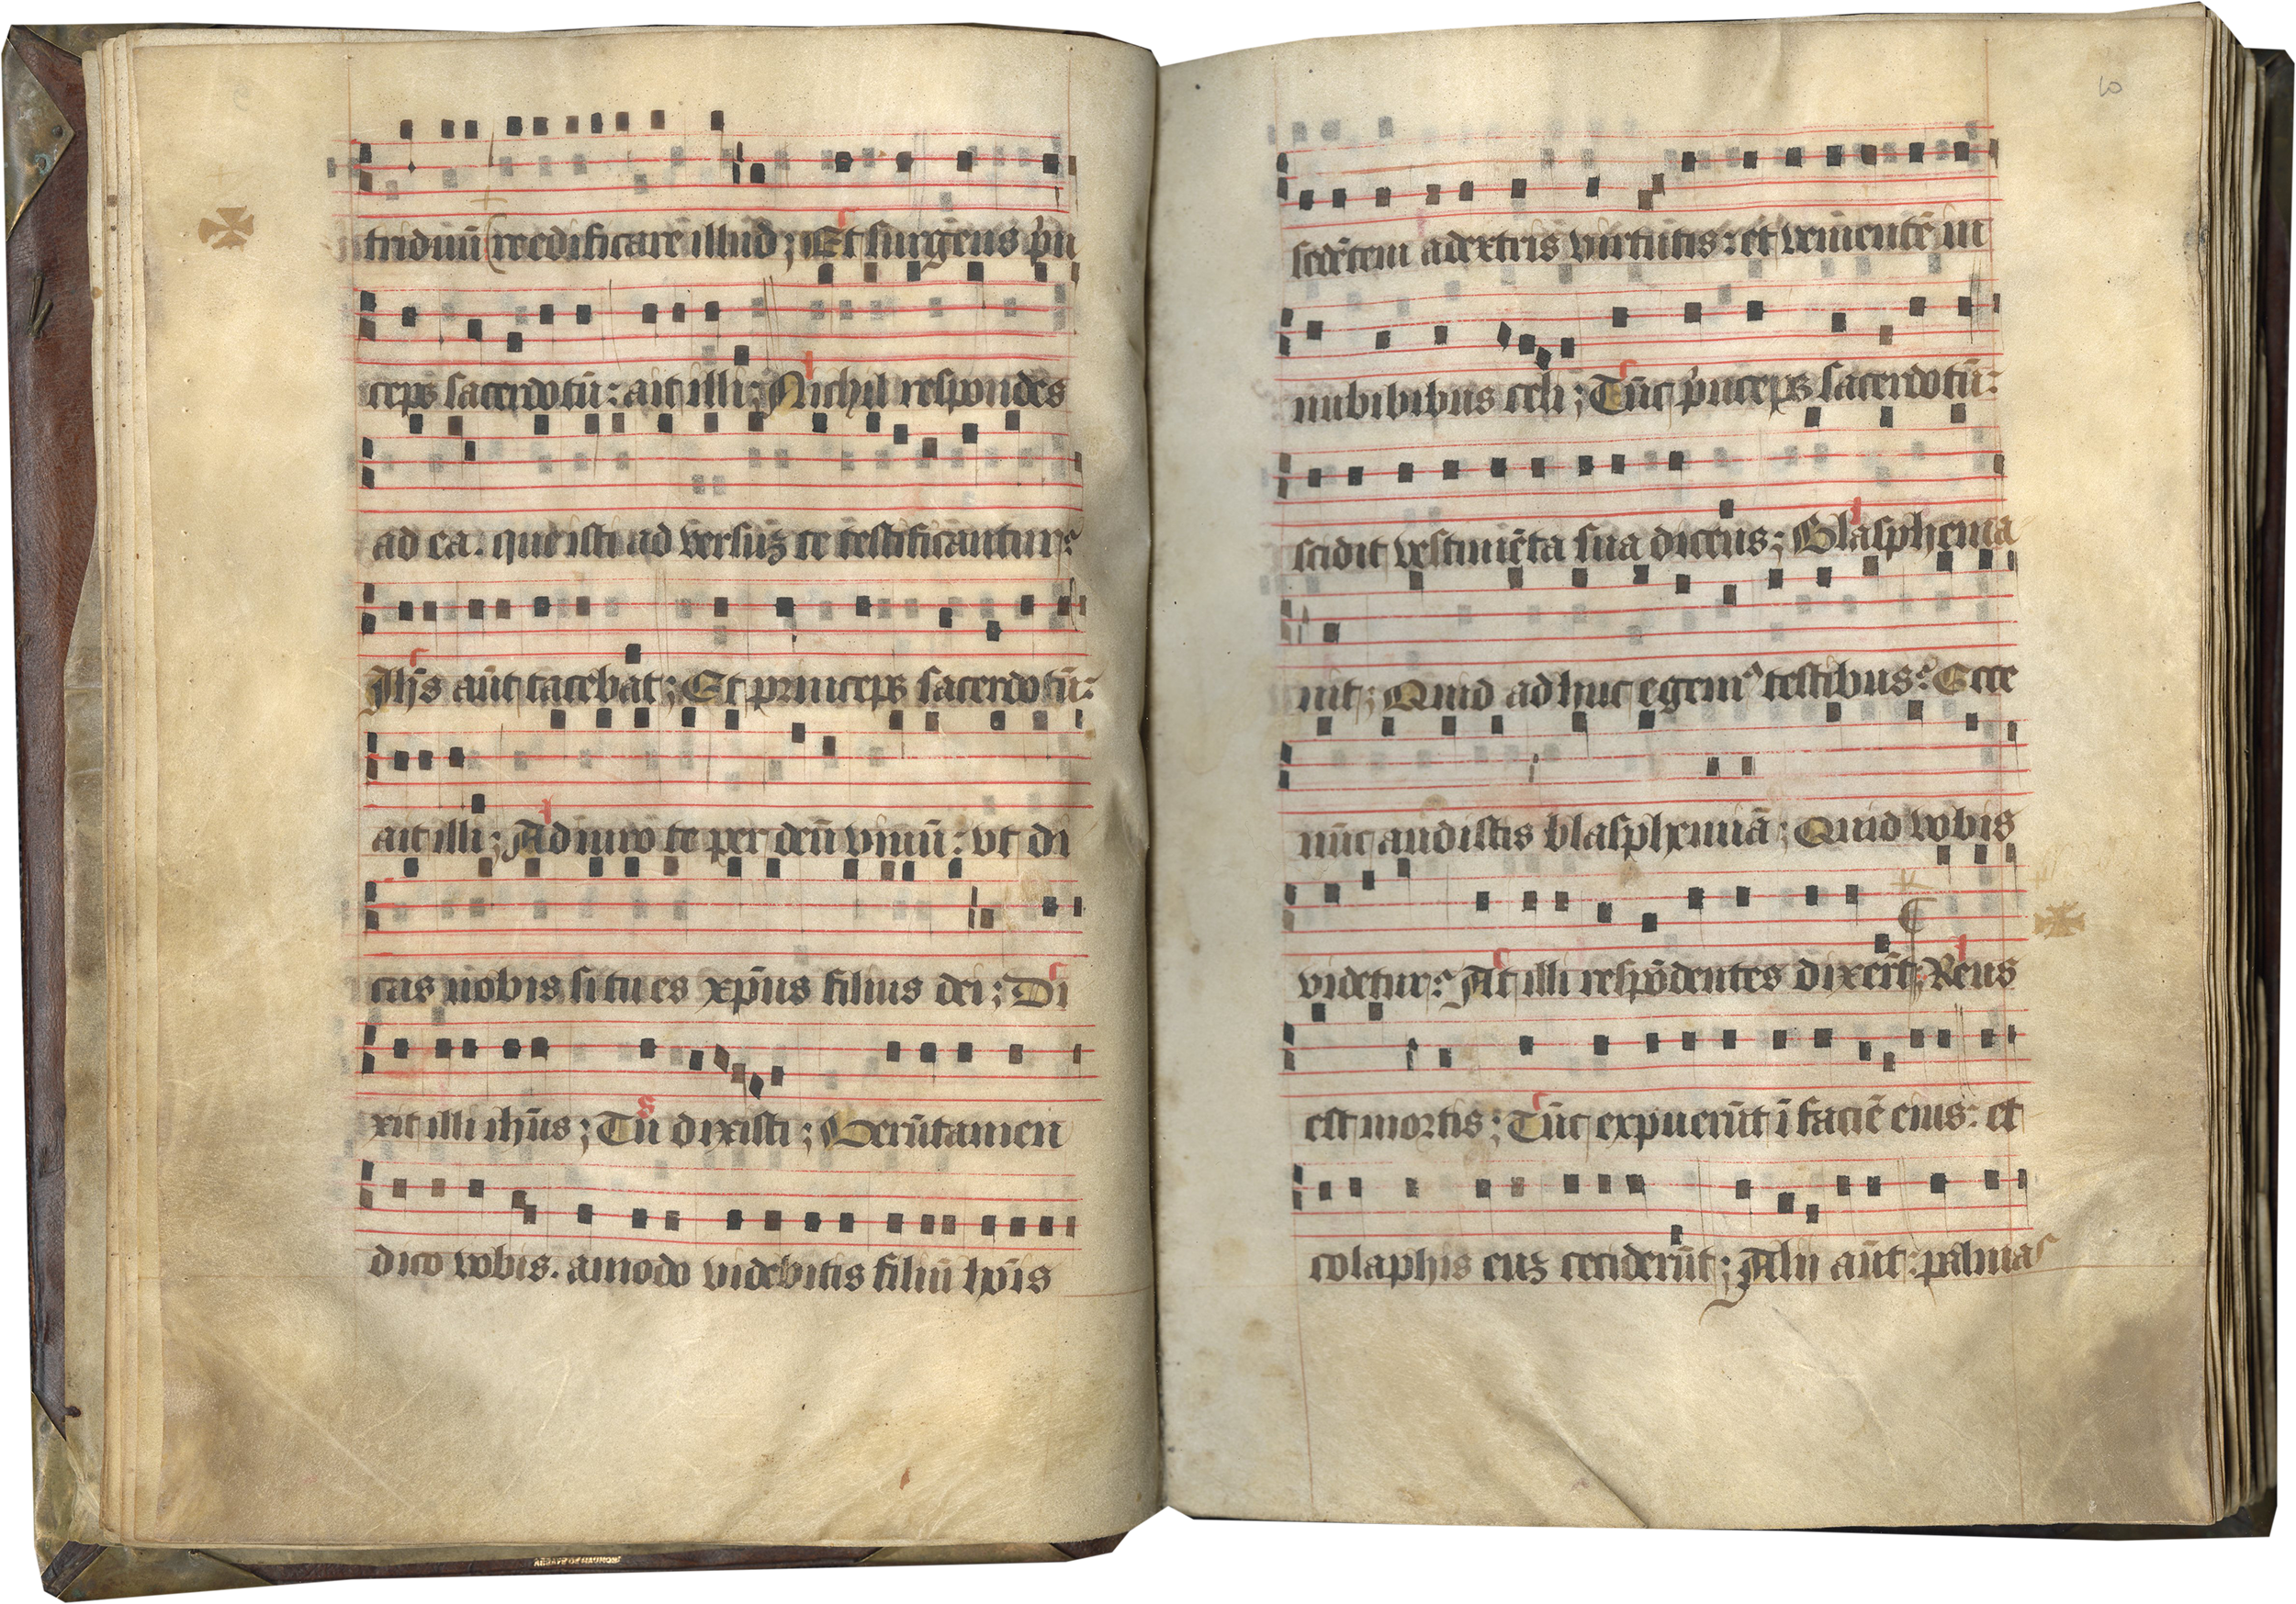 triduū reedificare illud; Et surgens p̄n
ceps sacerdotū: ait illi; Nichil respondes
ad ea. que isti ad versuʒ te testificantur?
Ih̄s aūt tacebat; Et princeps sacerdotū:
ait illi; Adiuro te per deū viuū: vt di
cas nobis si tu es xp̄us filius dei; Di
xit illi ih̄us; Tu dixisti; Verūtamen
dico vobis. amodo videbitis filiū hōis
sedētem adextris virtutis: et venientē in
nubibibus celi; Tūc p̄nceps sacerdotū:
scidit vestimēta sua dicens; Blasphema
uit; Quid ad huc egemꝰ testibus? Ecce
nūc audistis blasphemiā; Quid vobis
videtur? At illi respōdentes dixerūt; Reus
est mortis; Tūc expuerūt ī faciē eius: et
colaphis euʒ ceciderūt; Alii aūt: palmas
10
ABBAYE DE